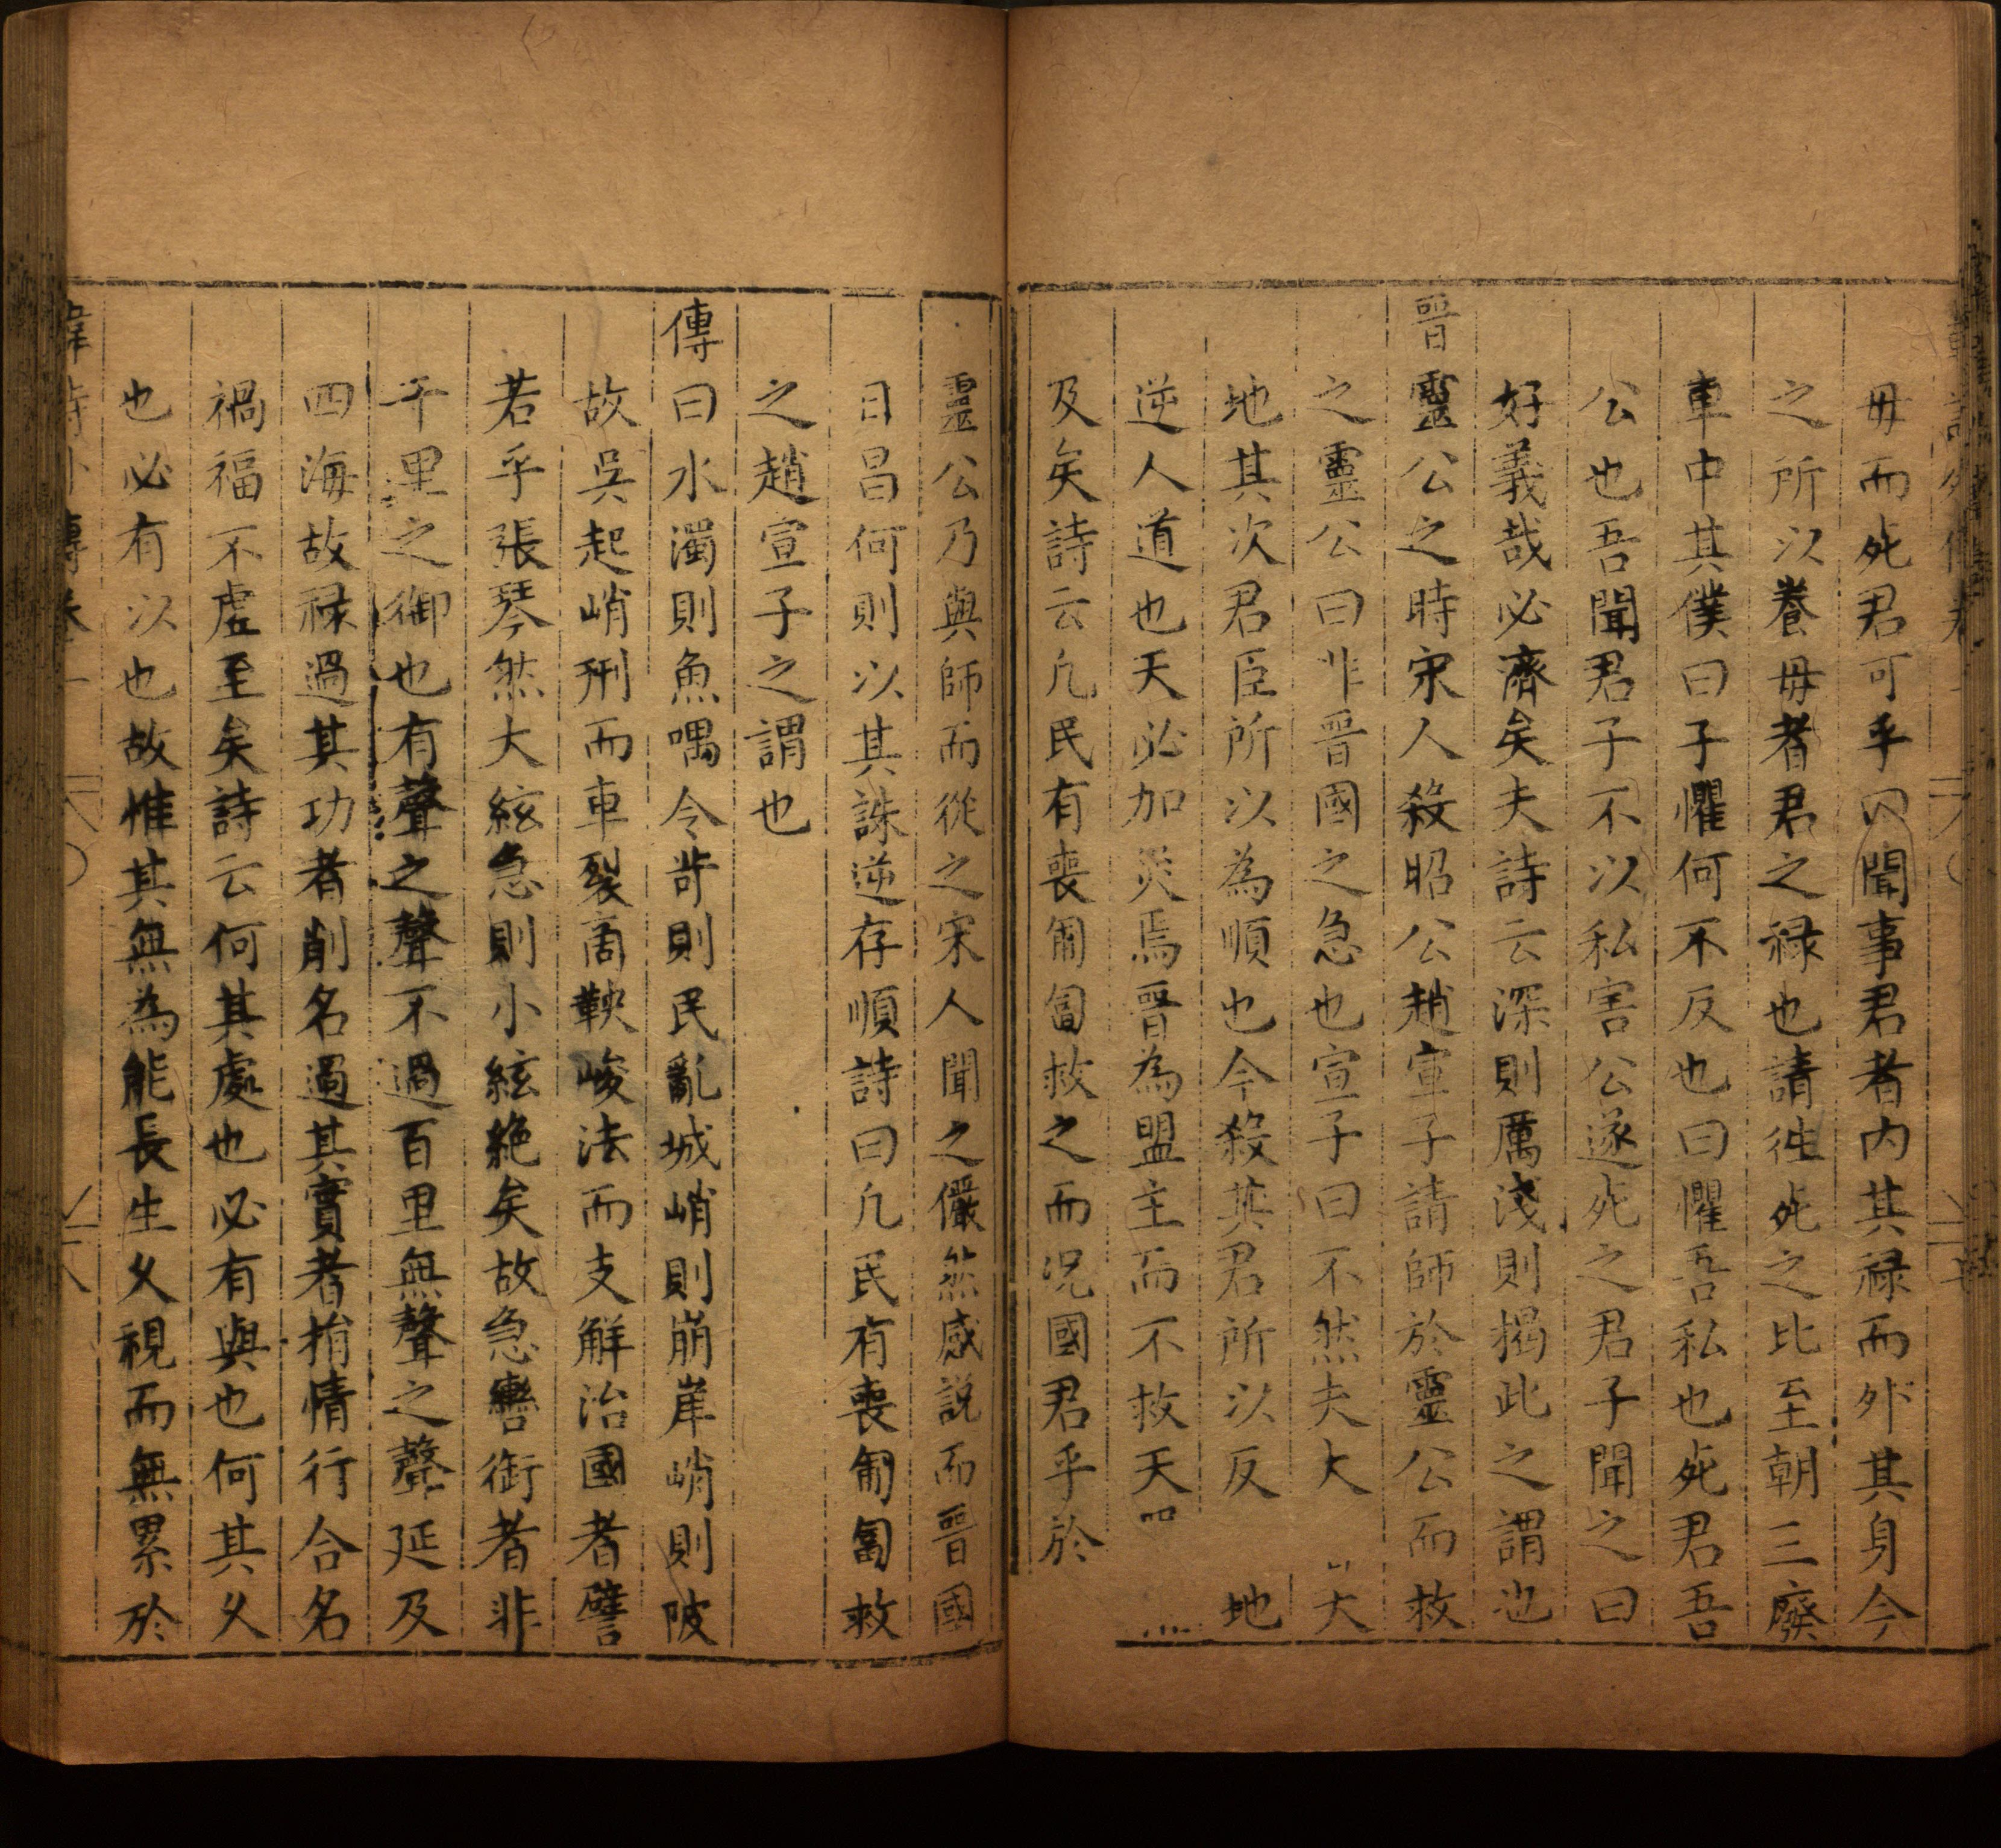 毋而死君可乎 聞事君者内其禄而外其身今
之所以養毋者君之禄也請徃死之比至朝三廢
車中其僕曰子懼何不反也曰懼吾私也死君吾
公也吾聞君子不以私害公遂死之君子聞之曰
好義哉必濟矣夫詩云深則厲淺則揭此之謂也
晉靈公之時宋人殺昭公趙宣子請師於靈公而救
之靈公曰非晉國之急也宣子曰不然夫大 天
地其次君臣所以為順也今殺其君所以反 地
逆人道也天必加災焉晉為盟主而不救天
及矣詩云凡民有喪匍匐救之而况國君乎於
靈公乃與師而從之宋人聞之儼然感説而晉國
日昌何則以其誅逆存順詩曰凡民有喪匍匐救
之趙宣子之謂也
傳曰水濁則魚喁令苛則民亂城峭則崩岸峭則陂
故吳起峭刑而車裂商鞅峻法而支解治國者譬
若乎張琴然大絃急則小絃絶矣故急轡銜者非
千里之御也有聲之聲不過百里無聲之聲延及
四海故禄過其功者削名過其實者損情行合名
禍福不虛至矣詩云何其處也必有與也何其久
也必有以也故惟其無為能長生久視而無累於